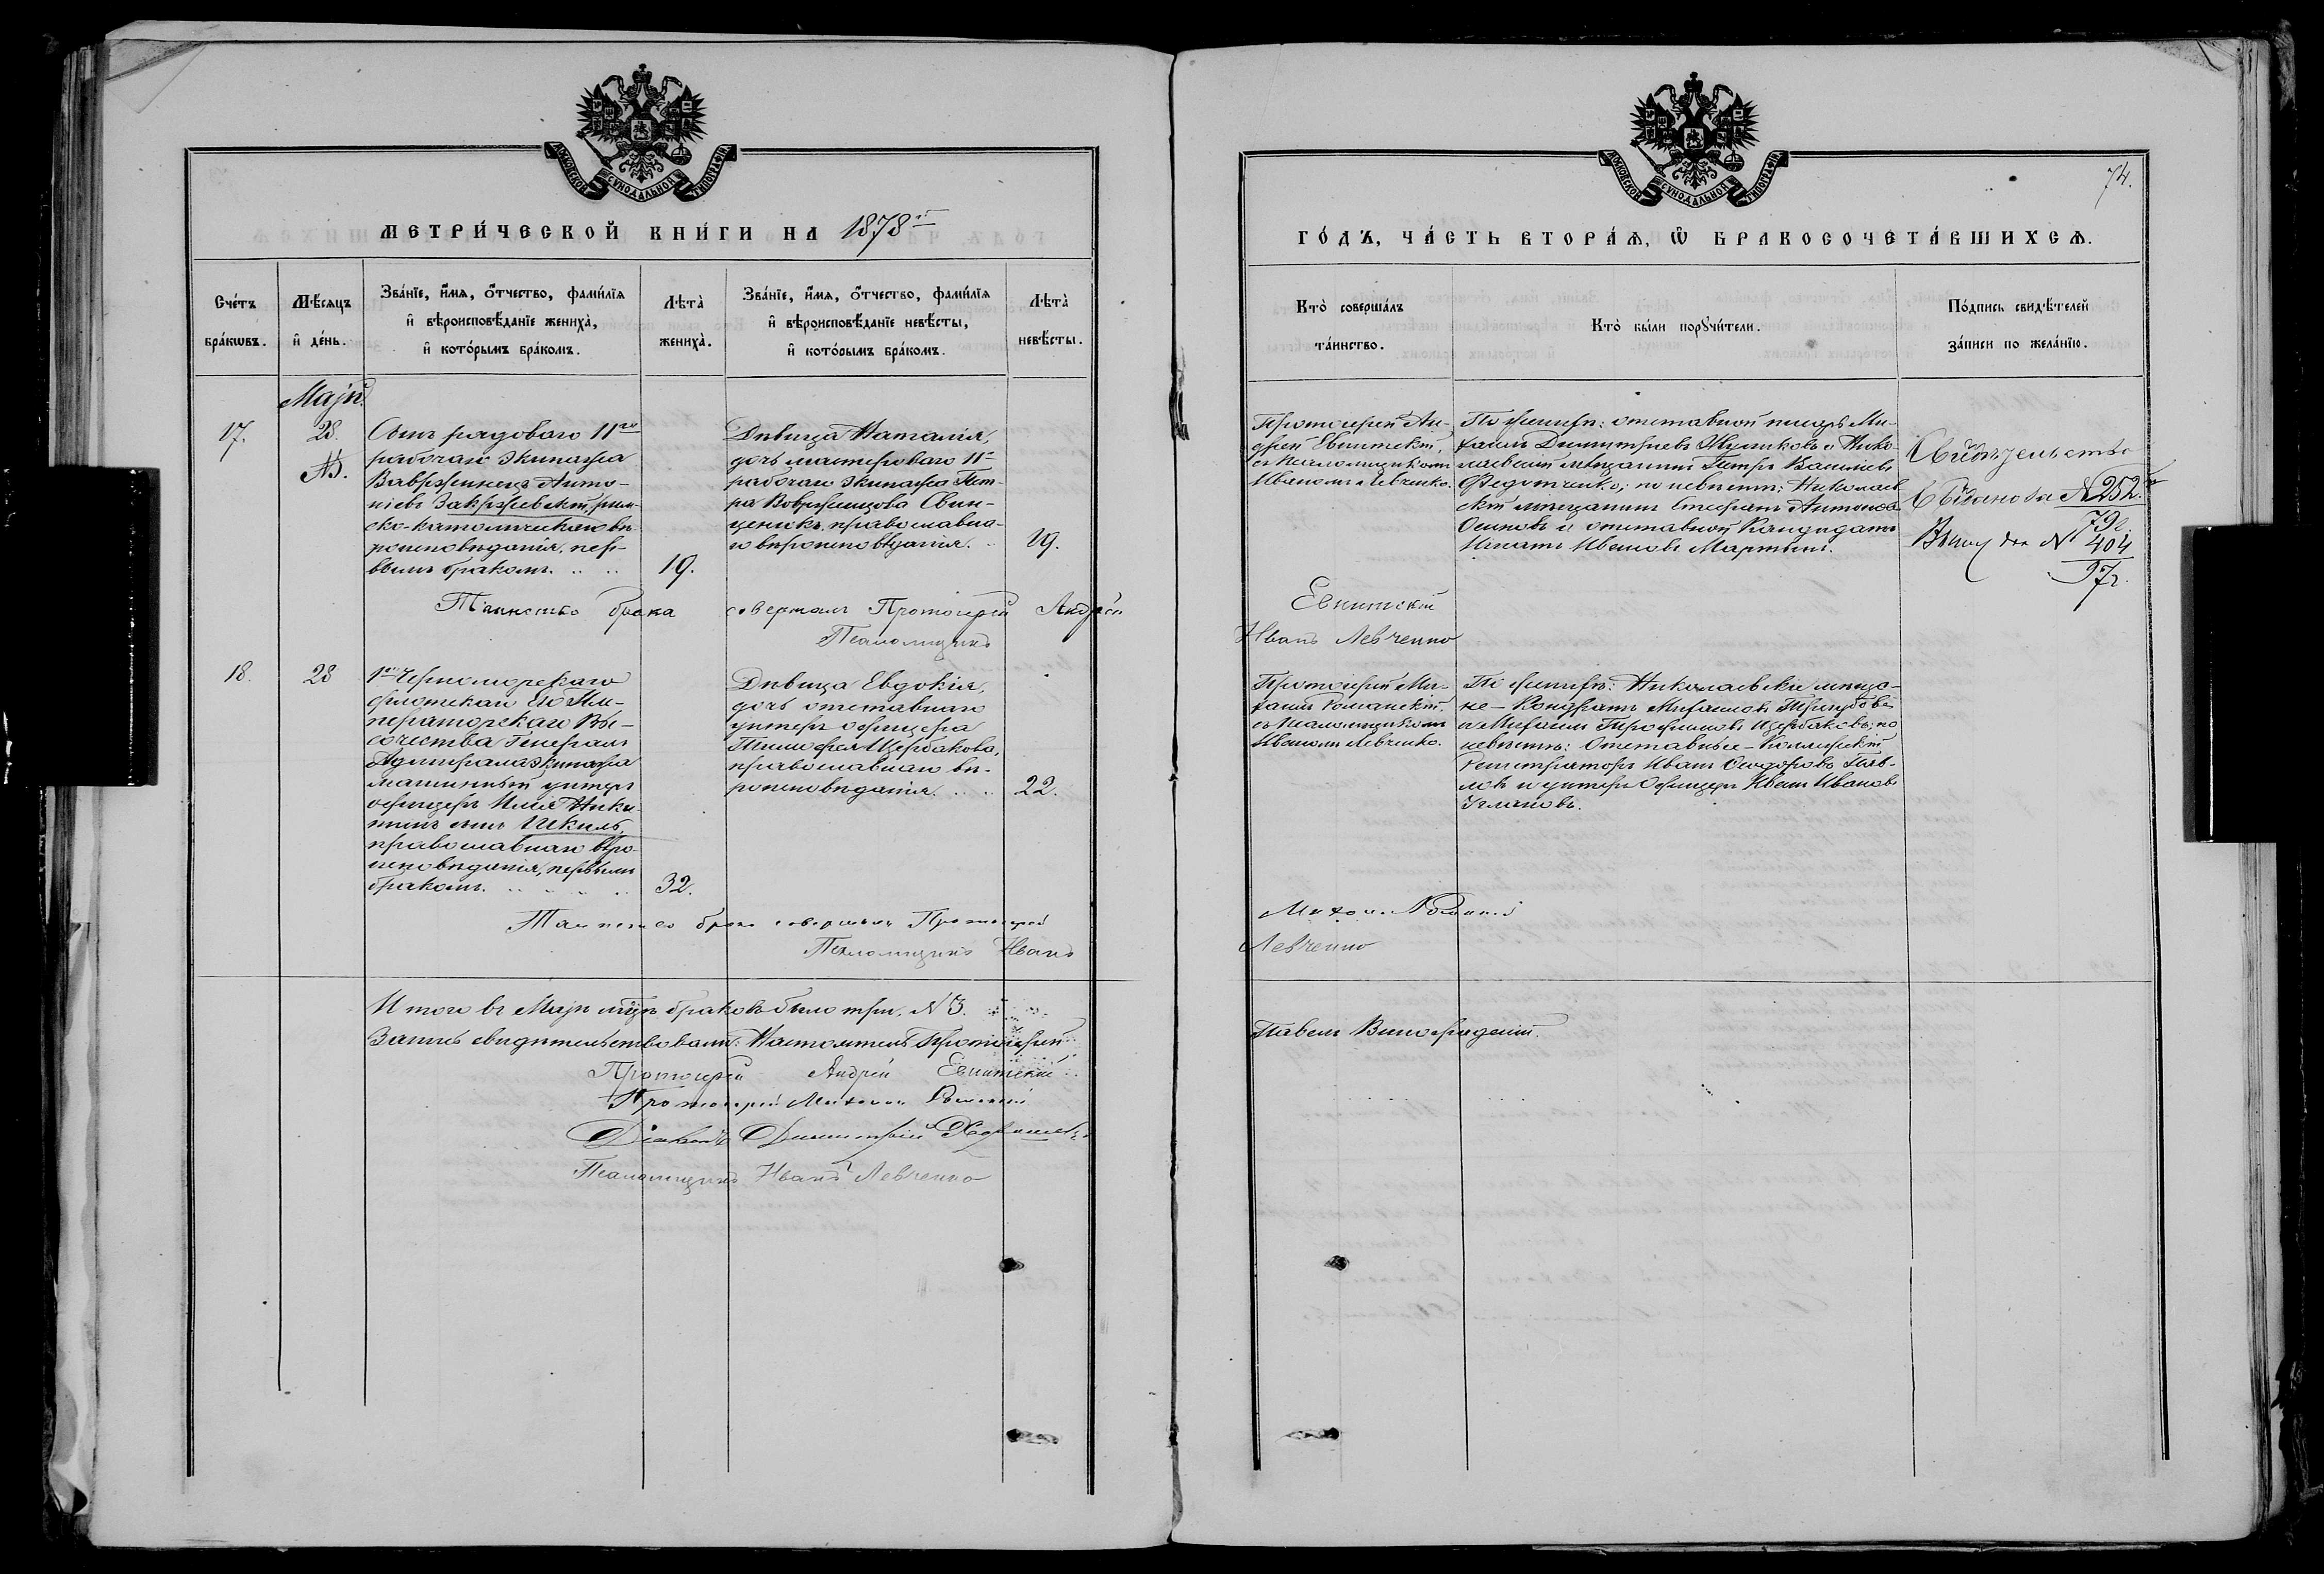 МОСКОВСКОЙ СѴНОДАЛЬНОЙ ТИПОГРАФІИ
МЕТРИ́ЧЕСКОЙ КНИ́ГИ НА 1878й
Сче́тъ бра́кѡвъ.
Мѣ́сяцъ и҆ де́нь.
Зва́нїе, и҆́мѧ, ѻ҆́тчество, фами́лїѧ
и҆ вѣроисповѣ́данїе жениха̀,
и҆ кото́рымъ бра́комъ.
Лѣта̀ жениха̀.
Зва́нїе, и҆́мѧ, ѻ҆́тчество, фами́лїѧ
и҆ вѣроисповѣ́данїе невѣ́сты,
и҆ кото́рымъ бра́комъ.
Лѣта̀ невѣ́сты.
Маій.
17.
28.
№.
Сынъ рядоваго 11го
рабочаго экипажа
Вавржинецъ Анто-
ніевъ Закржевскій, рим-
ско-католическаго вѣ-
роисповѣданія, пер-
вымъ бракомъ.
19.
Дѣвица Наталія,
дочь мастероваго 11го
рабочаго экипажа Пет-
ра
православна-
го вѣроисповѣданія.
19.
Таинство брака совершалъ Протоіерей Андрей
Псаломщикъ
18.
28
1го Черноморскаго
флотскаго Его Им-
ператорскаго Вы-
сочества Генералъ
Адмирала экипажа
машинный унтеръ
офицеръ Илія Ники-
тинъ сынъ Шкиль,
православнаго вѣро-
исповѣданія, первымъ
бракомъ.
32.
Дѣвица Евдокія,
дочь отставнаго
унтеръ офицера
Тимофея Щербакова,
православнаго вѣ-
роисповѣданія.
22.
Таинство брака совершалъ Протоіерей
Псаломщикъ Иванъ
Итого въ Маіѣ мѣсяцѣ браковъ было три. № 3.
Запись свидѣтельствовали: Настоятель Протоіерей
Протоіерей Андрей Евнитскій
Протоіерей Михаилъ Романскій
Діаконъ Димитрій
Псаломщикъ Иванъ Левченко
МОСКОВСКОЙ СѴНОДАЛЬНОЙ ТИПОГРАФІИ
74.
ГО́ДЪ, ЧА́СТЬ ВТОРА́Ѧ, Ѡ҆ БРАКОСОЧЕТА́ВШИХСѦ.
Кто̀ соверша́лъ
та́инство.
Кто̀ бы́ли порꙋчи́тели.
По́дпись свидѣ́телей
за́писи по жела́нїю.
Протоіерей Ан-
дрей Евнитскій,
съ Псаломщикомъ
Иваномъ Левченко.
По женихѣ: отставной писарь Ми-
хаилъ Димитріевъ и Нико-
лаевскій мѣщанинъ Петръ Василіевъ
Федотченко; по невѣстѣ: Николаев-
скій мѣщанинъ Стефанъ Антоновъ
Осиповъ и отставной Кандидатъ
Игнатъ Ивановъ Мартынъ.
Свидѣтельство
№ 252.
79г.
Выдано № 404
97г.
Евнитскій
Иванъ Левченко
Протоіерей Ми-
хаилъ Романскій
съ Псаломщикомъ
Иваномъ Левченко.
По женихѣ: Николаевскіе мѣща-
не - Кондратъ Михайловъ
и Михаилъ Трофимовъ Щербаковъ; по
невѣстѣ: Отставные - Коллежскій
Регистраторъ Иванъ Ѳеодоровъ Пав-
ловъ и унтеръ Офицеръ Иванъ Ивановъ
Улановъ.
Михаилъ Романскій
Левченко
Павелъ Виноградскій.